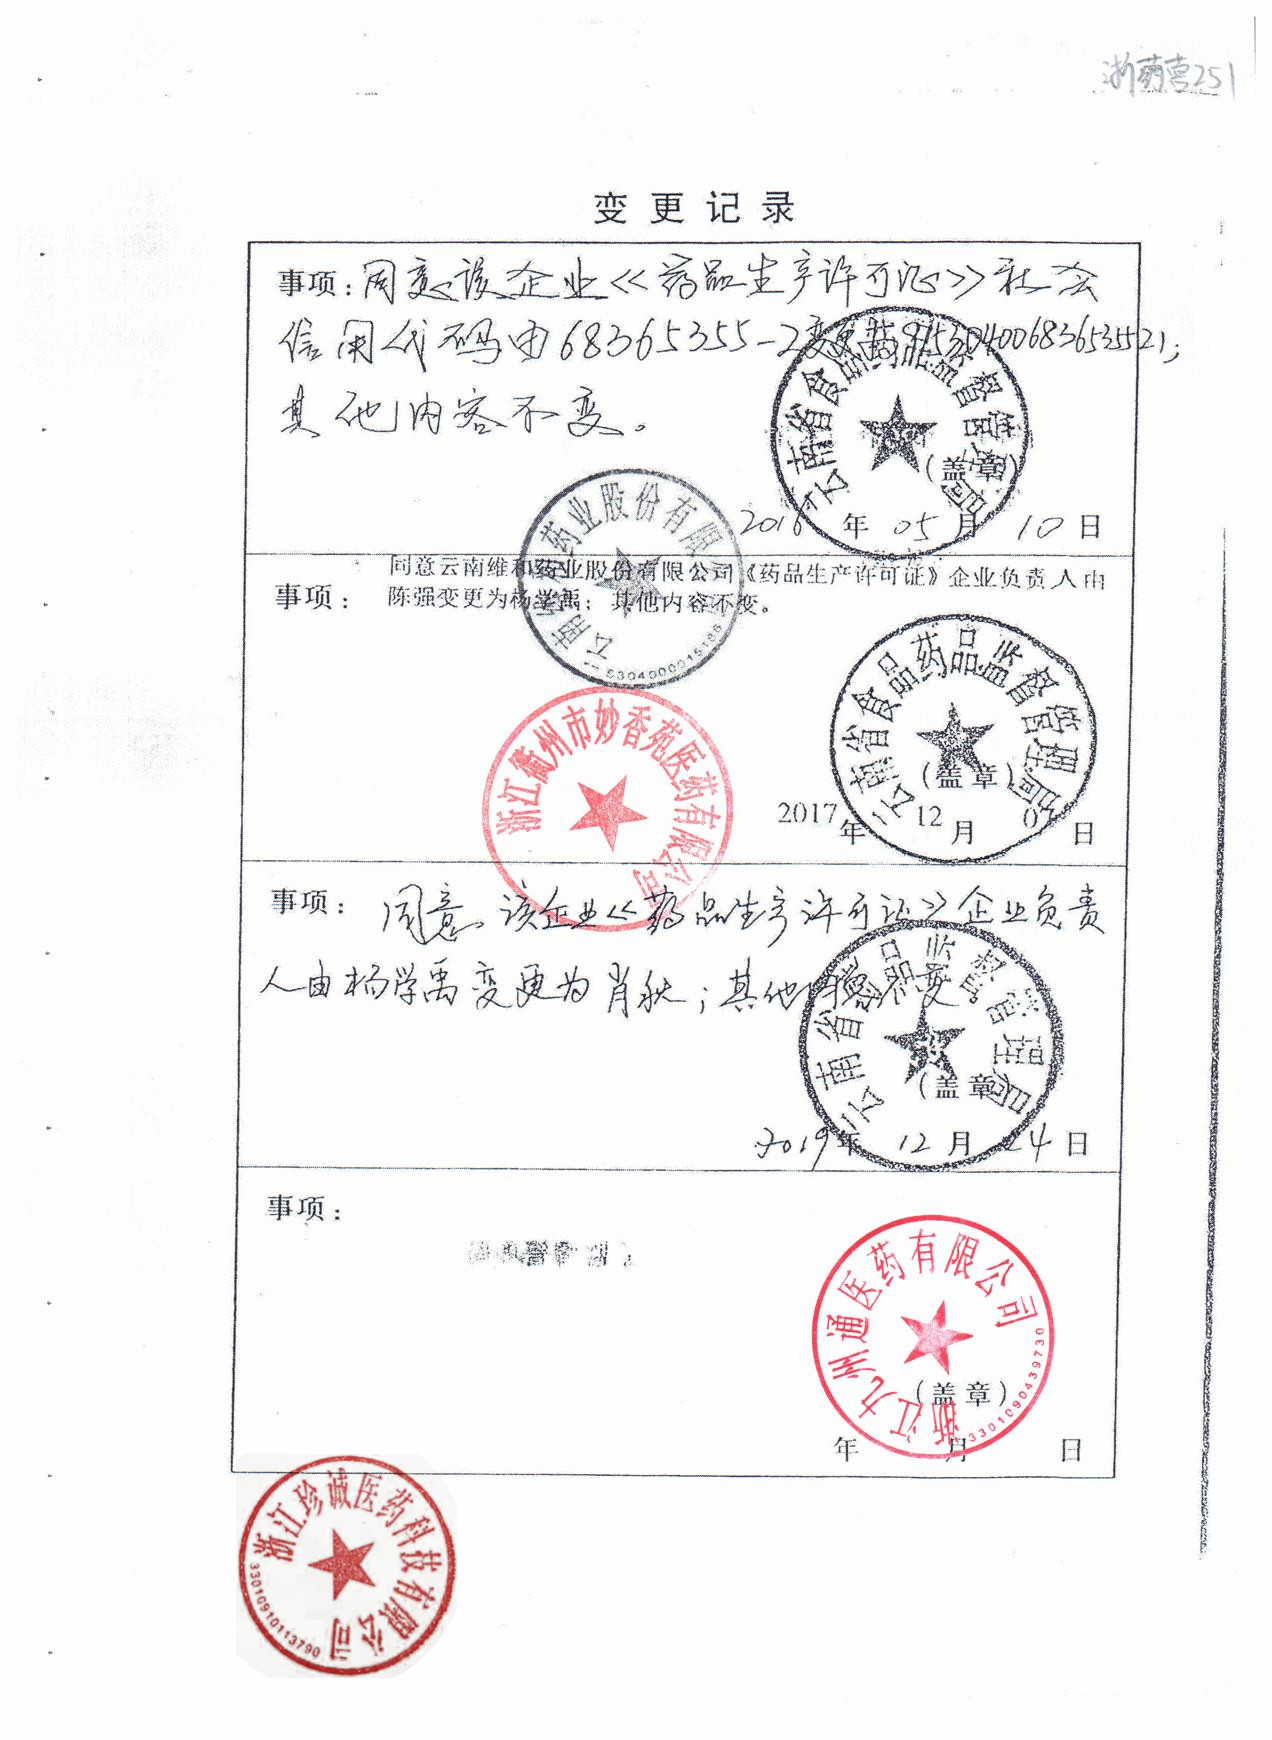 浙药营251
变更记录
事项：同意该企业《药品生产许可证》社会
信用代码由68365355-2变更为915304006836535521；
其他内容不变。
云南省食品药品监督管理局
（盖章）
2016年05月10日
云南维和药业股份有限公司
5304000015186
事项：
同意云南维和药业股份有限公司《药品生产许可证》企业负责人由
陈强变更为杨学禹；其他内容不变。
云南省食品药品监督管理局
（盖章）
2017年12月0日
浙江衢州市妙香苑医药有限公司
事项：同意该企业《药品生产许可证》企业负责
人由杨学禹变更为肖秋；其他内容不变
云南省药品监督管理局
（盖章）
2019年12月24日
事项：
浙江九州通医药有限公司
3301090439730
（盖章）
年 月 日
浙江珍诚医药科技有限公司
33010910113790